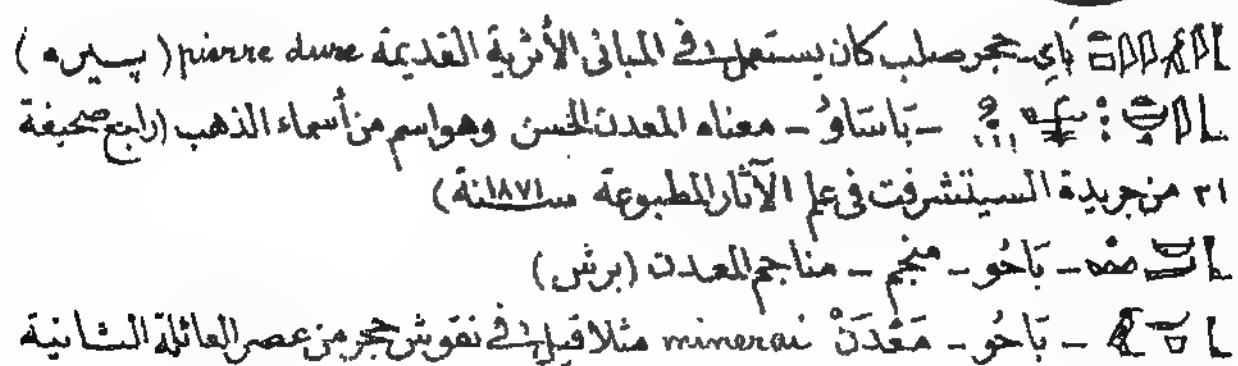 بَاىِ حجر صلب كان يستعمل فى المبانى الأثرية القديمة pierre dure ( بيره )
- بَاسَاوُ - معناه المعدن الحسن وهو اسم من أسماء الذهب (راجع صحيفة
٣١ من جريدة السيتشرفت فى علم الآثار المطبوعة سنة ١٨٧١)
- بَاحُو - منجم - مناجم المعدن (برش)
- بَاحُو - مَعْدَنْ minerai مثلا قيل فى نقوش حجر من عصر العائلة الثانية